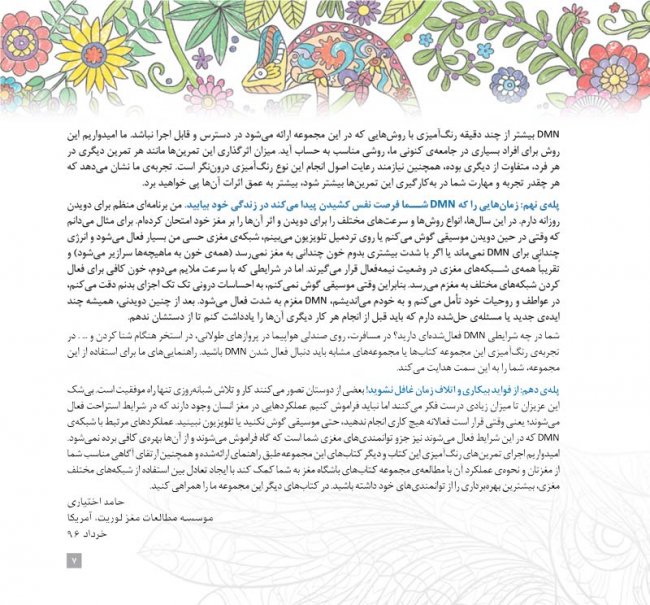 DMN بیشتر از چند دقیقه رنگ‌آمیزی با روش‌هایی که در این مجموعه ارائه می‌شود در دسترس و قابل اجرا نباشد. ما امیدواریم این
روش برای افراد بسیاری در جامعه‌ی کنونی ما، روشی مناسب به حساب آید. میزان اثرگذاری این تمرین‌ها مانند هر تمرین دیگری در
هر فرد، متفاوت از دیگری بوده، همچنین نیازمند رعایت اصول انجام این نوع رنگ‌آمیزی درون‌نگر است. تجربه‌ی ما نشان می‌دهد که
هر چقدر تجربه و مهارت شما در به‌کارگیری این تمرین‌ها بیشتر شود، بیشتر به عمق اثرات آن‌ها پی خواهید برد.
پله‌ی نهم: زمان‌هایی را که DMN شما فرصت نفس کشیدن پیدا می‌کند در زندگی خود بیابید. من برنامه‌ای منظم برای دویدن
روزانه دارم. در این سال‌ها، انواع روش‌ها و سرعت‌های مختلف را برای دویدن و اثر آن‌ها را بر مغز خود امتحان کرده‌ام. برای مثال می‌دانم
که وقتی در حین دویدن موسیقی گوش می‌کنم یا روی تردمیل تلویزیون می‌بینم، شبکه‌ی مغزی حسی من بسیار فعال می‌شود و انرژی
چندانی برای DMN نمی‌ماند یا اگر با شدت بیشتری بدوم خون چندانی به مغزم نمی‌رسد (همه‌ی خون به ماهیچه‌ها سرازیر می‌شود) و
تقریباً همه‌ی شبکه‌های مغزی در وضعیت نیمه‌فعال قرار می‌گیرند. اما در شرایطی که با سرعت ملایم می‌دوم، خون کافی برای فعال
کردن شبکه‌های مختلف به مغزم می‌رسد. بنابراین وقتی موسیقی گوش نمی‌کنم، به احساسات درونی تک تک اجزای بدنم دقت می‌کنم،
در عواطف و روحیات خود تأمل می‌کنم و به خودم می‌اندیشم، DMN مغزم به شدت فعال می‌شود. بعد از چنین دویدنی، همیشه چند
ایده‌ی جدید یا مسئله‌ی حل‌شده دارم که باید قبل از انجام هر کار دیگری آن‌ها را یادداشت کنم تا از دستشان ندهم.
شما در چه شرایطی DMN فعال‌شده‌ای دارید؟ در مسافرت، روی صندلی هواپیما در پروازهای طولانی، در استخر هنگام شنا کردن و .... در
تجربه‌ی رنگ‌آمیزی این مجموعه کتاب‌ها یا مجموعه‌های مشابه باید دنبال فعال شدن DMN باشید. راهنمایی‌های ما برای استفاده از این
مجموعه، شما را به این سمت هدایت می‌کند.
پله‌ی دهم: از فواید بیکاری و اتلاف زمان غافل نشوید! بعضی از دوستان تصور می‌کنند کار و تلاش شبانه‌روزی تنها راه موفقیت است. بی‌شک
این عزیزان تا میزان زیادی درست فکر می‌کنند اما نباید فراموش کنیم عملکردهایی در مغز انسان وجود دارند که در شرایط استراحت فعال
می‌شوند؛ یعنی وقتی قرار است فعالانه هیچ کاری انجام ندهید، حتی موسیقی گوش نکنید یا تلویزیون نبینید. عملکردهای مرتبط با شبکه‌ی
DMN که در این شرایط فعال می‌شوند نیز جزو توانمندی‌های مغزی شما است که گاه فراموش می‌شوند و از آن‌ها بهره‌ی کافی برده نمی‌شود.
امیدواریم اجرای تمرین‌های رنگ‌آمیزی این کتاب و دیگر کتاب‌های این مجموعه طبق راهنمای ارائه‌شده و همچنین ارتقای آگاهی مناسب شما
از مغزتان و نحوه‌ی عملکرد آن با مطالعه‌ی مجموعه کتاب‌های باشگاه مغز به شما کمک کند با ایجاد تعادل بین استفاده از شبکه‌های مختلف
مغزی، بیشترین بهره‌برداری را از توانمندی‌های خود داشته باشید. در کتاب‌های دیگر این مجموعه ما را همراهی کنید.
حامد اختیاری
موسسه مطالعات مغز لوریت، آمریکا
خرداد ۹۶
۷